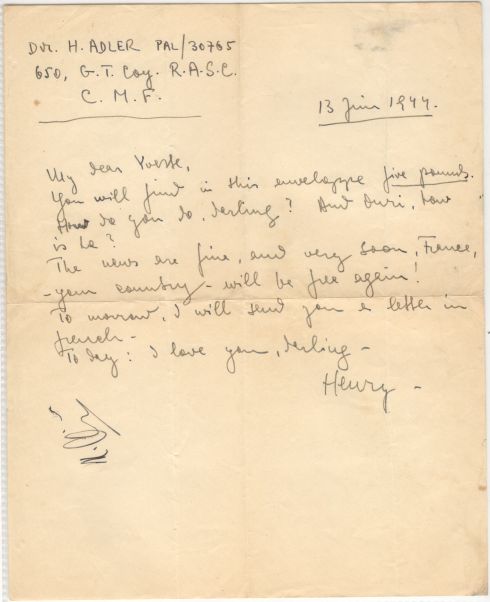 Dvr. H. ADLER PAL/30765
650, G.T. Coy. R.A.S.C.
C. M. F.
13 Juin 1944.
My dear Yvette,
You will find in this enveloppe five pounds.
How do you do, darling? And Duri, how
is he?
The news are fine, and very soon, France,
- your country - will be free again!
To morrow, I will send you a letter in
french -
To day : I love you, darling -
Henry -